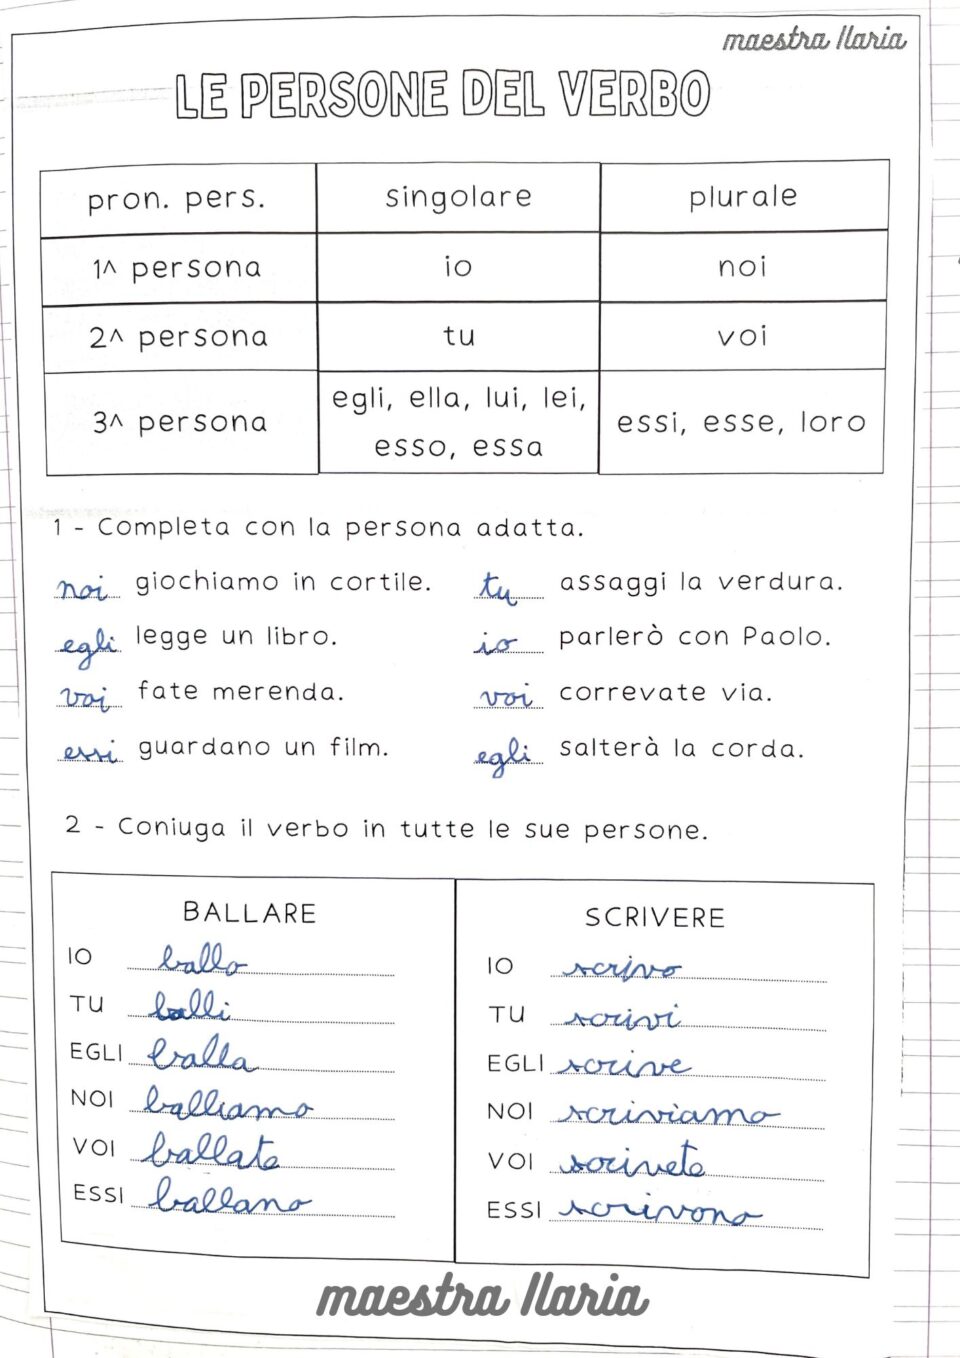 maestra Ilaria
LE PERSONE DEL VERBO
pron. pers. singolare plurale
1^ persona io noi
2^ persona tu voi
3^ persona egli, ella, lui, lei, esso, essa essi, esse, loro
1 - Completa con la persona adatta.
noi giochiamo in cortile. tu assaggi la verdura.
egli legge un libro. io parlerò con Paolo.
voi fate merenda. voi correvate via.
essi guardano un film. egli salterà la corda.
2 - Coniuga il verbo in tutte le sue persone.
BALLARE
IO ballo
TU balli
EGLI balla
NOI balliamo
VOI ballate
ESSI ballano
SCRIVERE
IO scrivo
TU scrivi
EGLI scrive
NOI scriviamo
VOI scrivete
ESSI scrivono
maestra Ilaria